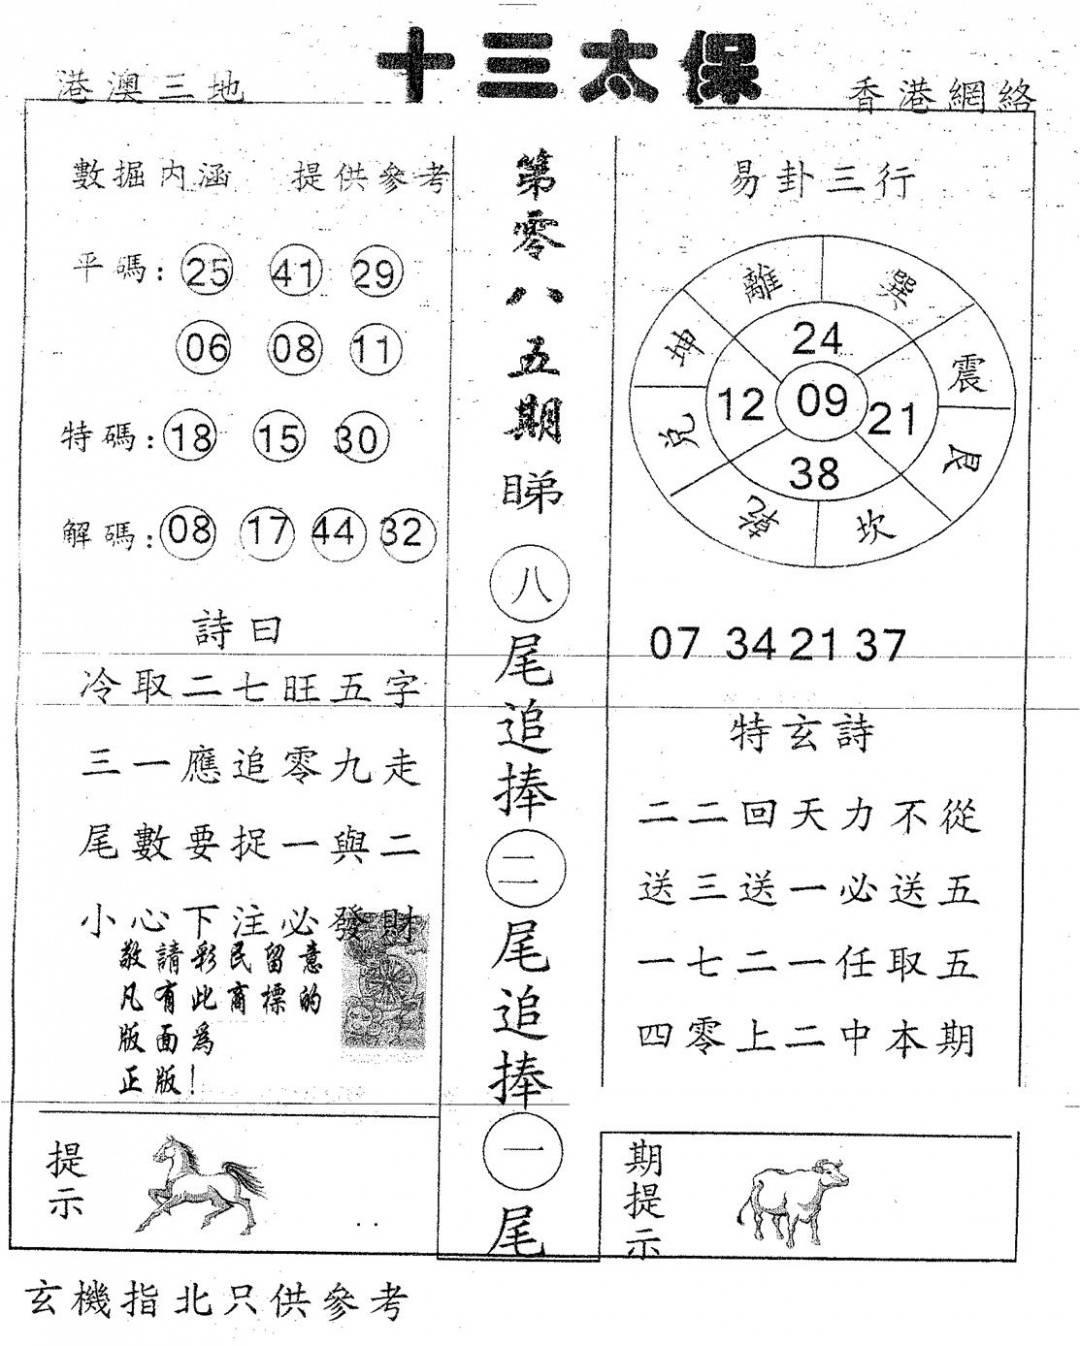 十三太保
港澳三地
香港網絡
數据内涵 提供參考
平碼: 25 41 29
06 08 11
特碼: 18 15 30
解碼: 08 17 44 32
詩曰
冷取二七旺五字
三一應追零九走
尾數要捉一與二
小心下注必發財
敬請彩民留意
凡有此商標的
版面爲
正版!
提示
第零八五期睇八尾追捧二尾追捧一尾
易卦三行
離 巽
坤 震
兌 艮
乾 坎
24
12 09 21
38
07 34 21 37
特玄詩
二二回天力不從
送三送一必送五
一七二一任取五
四零上二中本期
期提示
玄機指北只供參考